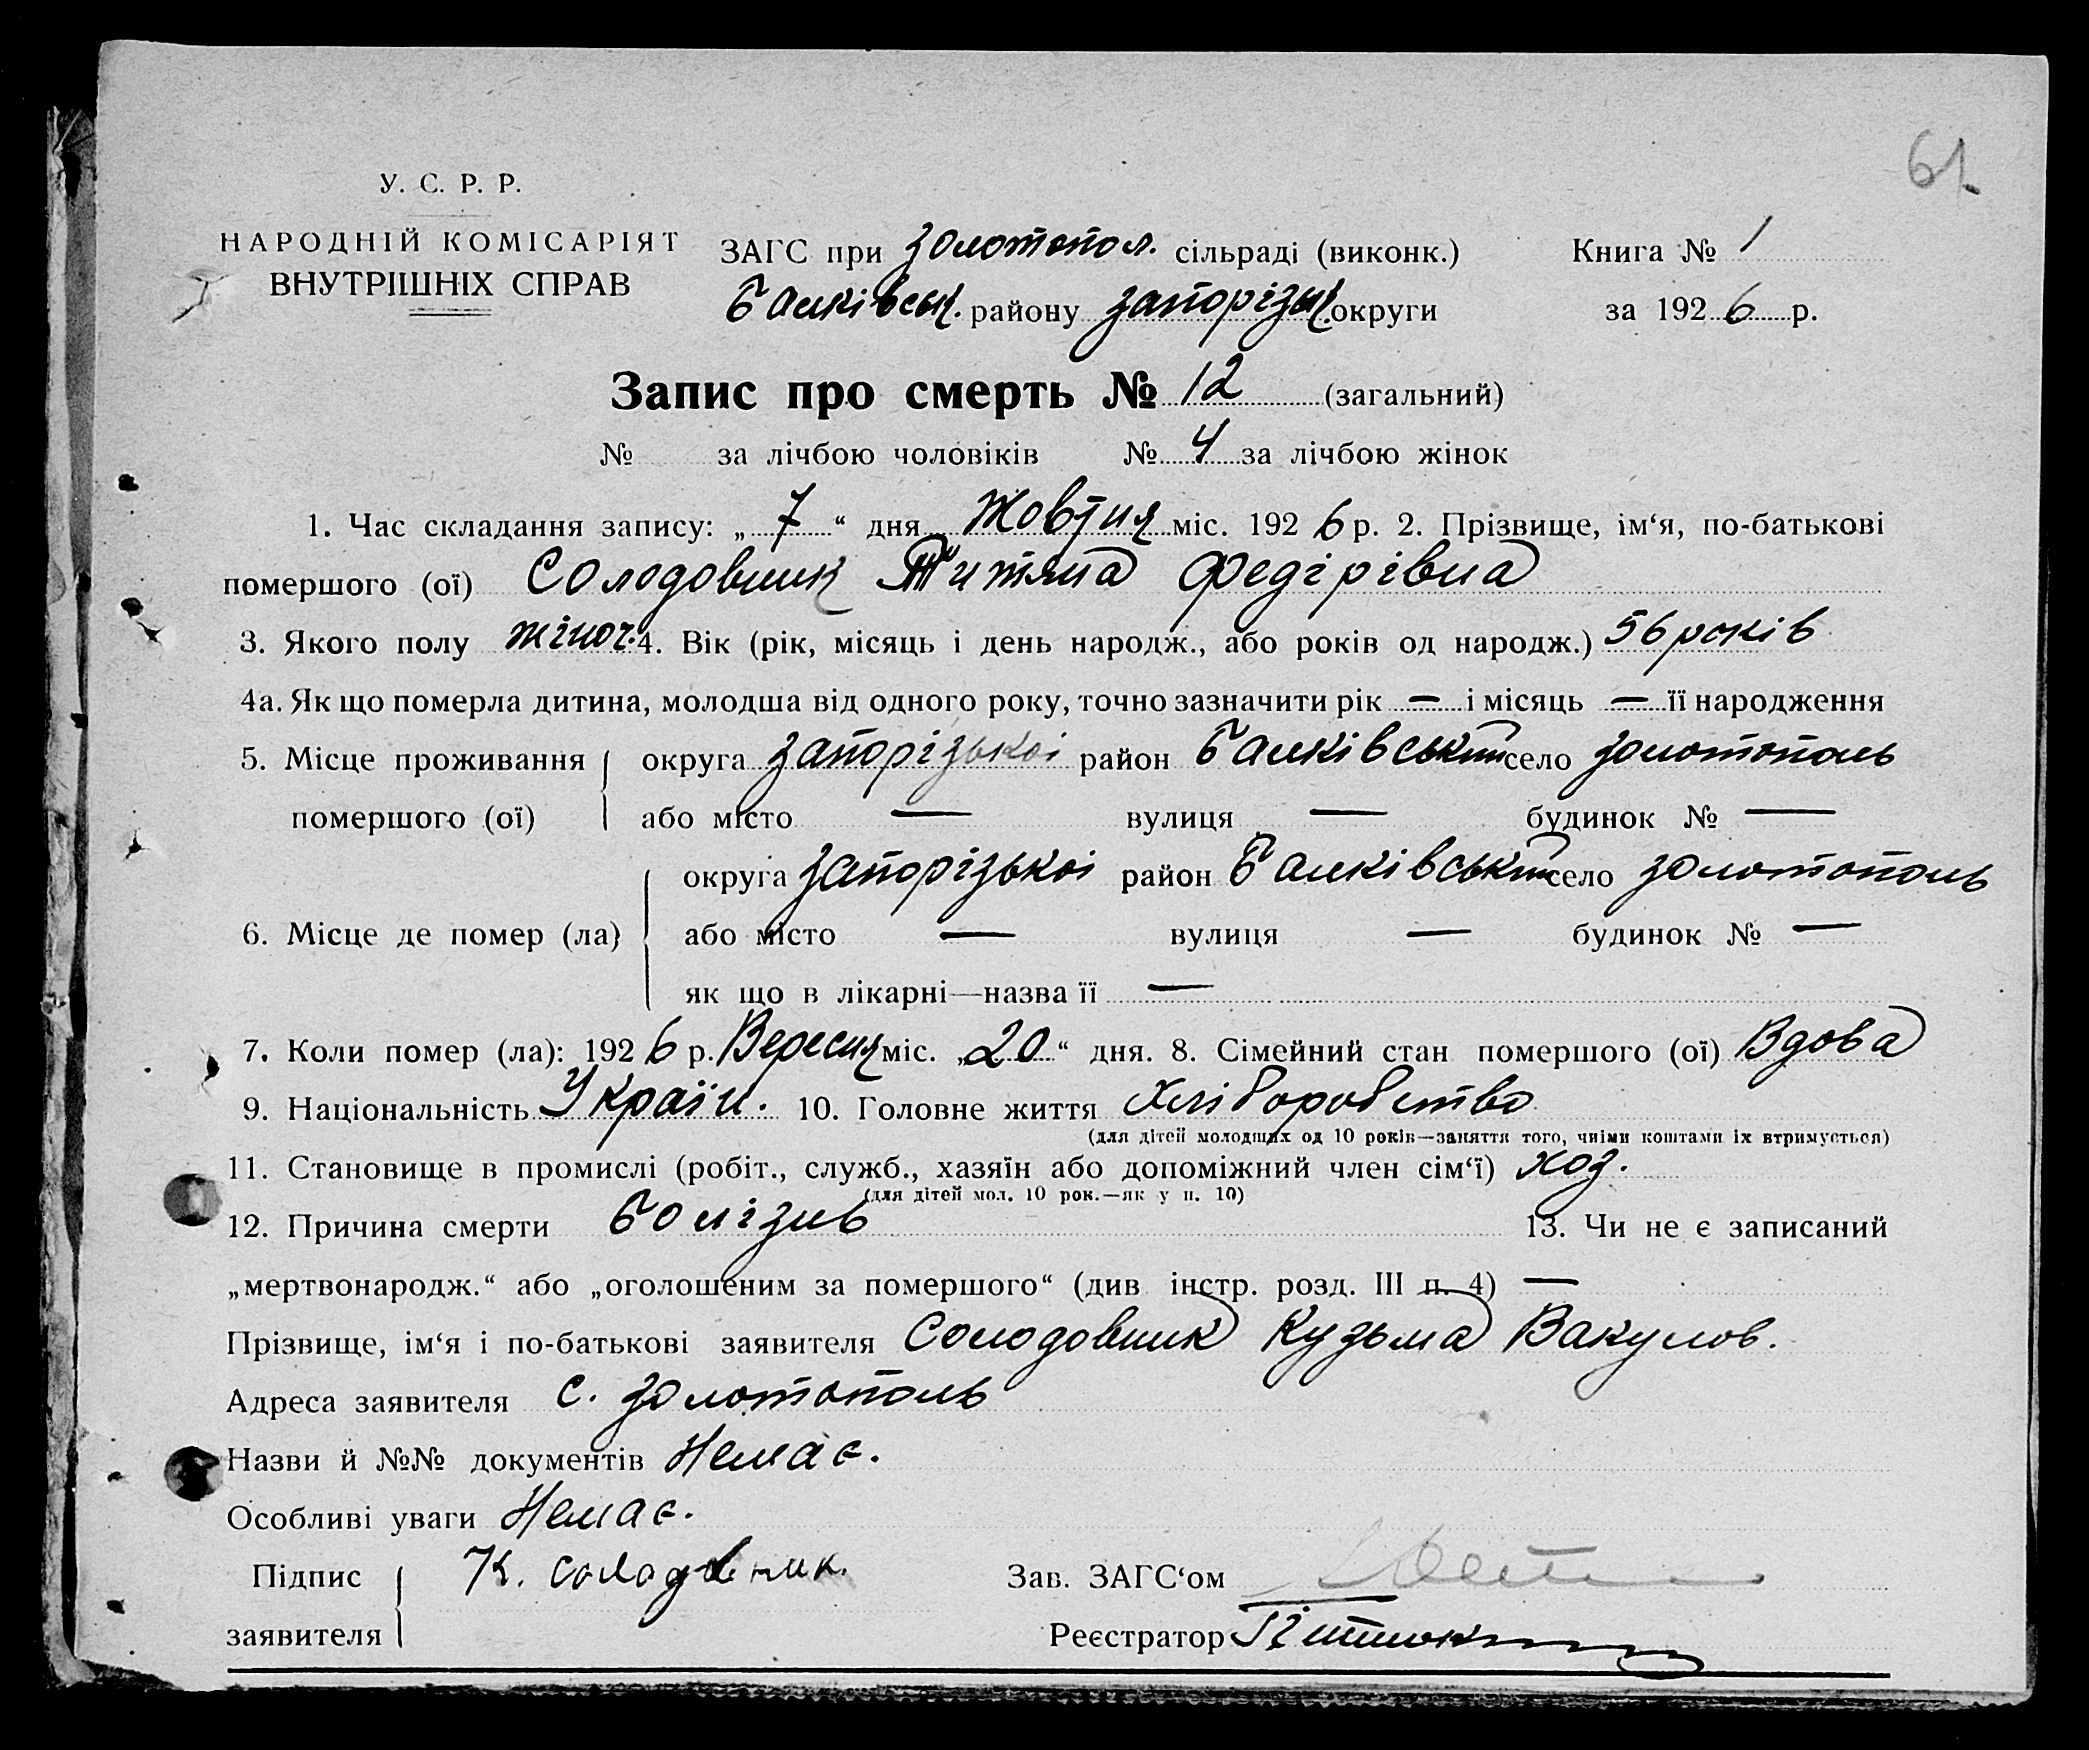 61
У. С. Р. Р.
НАРОДНІЙ КОМІСАРІЯТ
ВНУТРІШНІХ СПРАВ
ЗАГС при Золотопол. сільраді (виконк.) Книга № 1
Балківськ. району Запорізьк. округи за 1926 р.
Запис про смерть № 12 (загальний)
№ за лічбою чоловіків № 4 за лічбою жінок
1. Час складання запису: „ 7 “ дня Жовтня міс. 1926 р. 2. Прізвище, ім‘я, по-батькові
помершого (ої) Солодовник Титяна Федірівна
3. Якого полу жіноч. 4. Вік (рік, місяць і день народж., або років од народж.) 56 років
4а. Як що померла дитина, молодша від одного року, точно зазначити рік — і місяць — її народження
5. Місце проживання округа Запорізькоі район Балківський село Золотополь
помершого (ої) або місто — вулиця — будинок № —
округа Запорізькоі район Балківський село Золотополь
6. Місце де помер (ла) або місто — вулиця — будинок № —
як що в лікарні—назва її —
7. Коли помер (ла): 1926 р. Вересня міс. „ 20 “ дня. 8. Сімейний стан помершого (ої) Вдова
9. Національність Україн. 10. Головне життя Хліборобство
(для дітей молодших од 10 років—заняття того, чиїми коштами їх втримується)
11. Становище в промислі (робіт., служб., хазяїн або допоміжний член сім‘ї) хоз.
(для дітей мол. 10 рок.—як у п. 10)
12. Причина смерти Болізнь 13. Чи не є записаний
„мертвонародж.“ або „оголошеним за помершого“ (див. інстр. розд. III п. 4) —
Прізвище, ім‘я і по-батькові заявителя Солодовник Кузьма Вакулов.
Адреса заявителя с. Золотополь
Назви й №№ документів Немає.
Особливі уваги Немає.
Підпис К. Солодовник. Зав. ЗАГС‘ом
заявителя Реєстратор